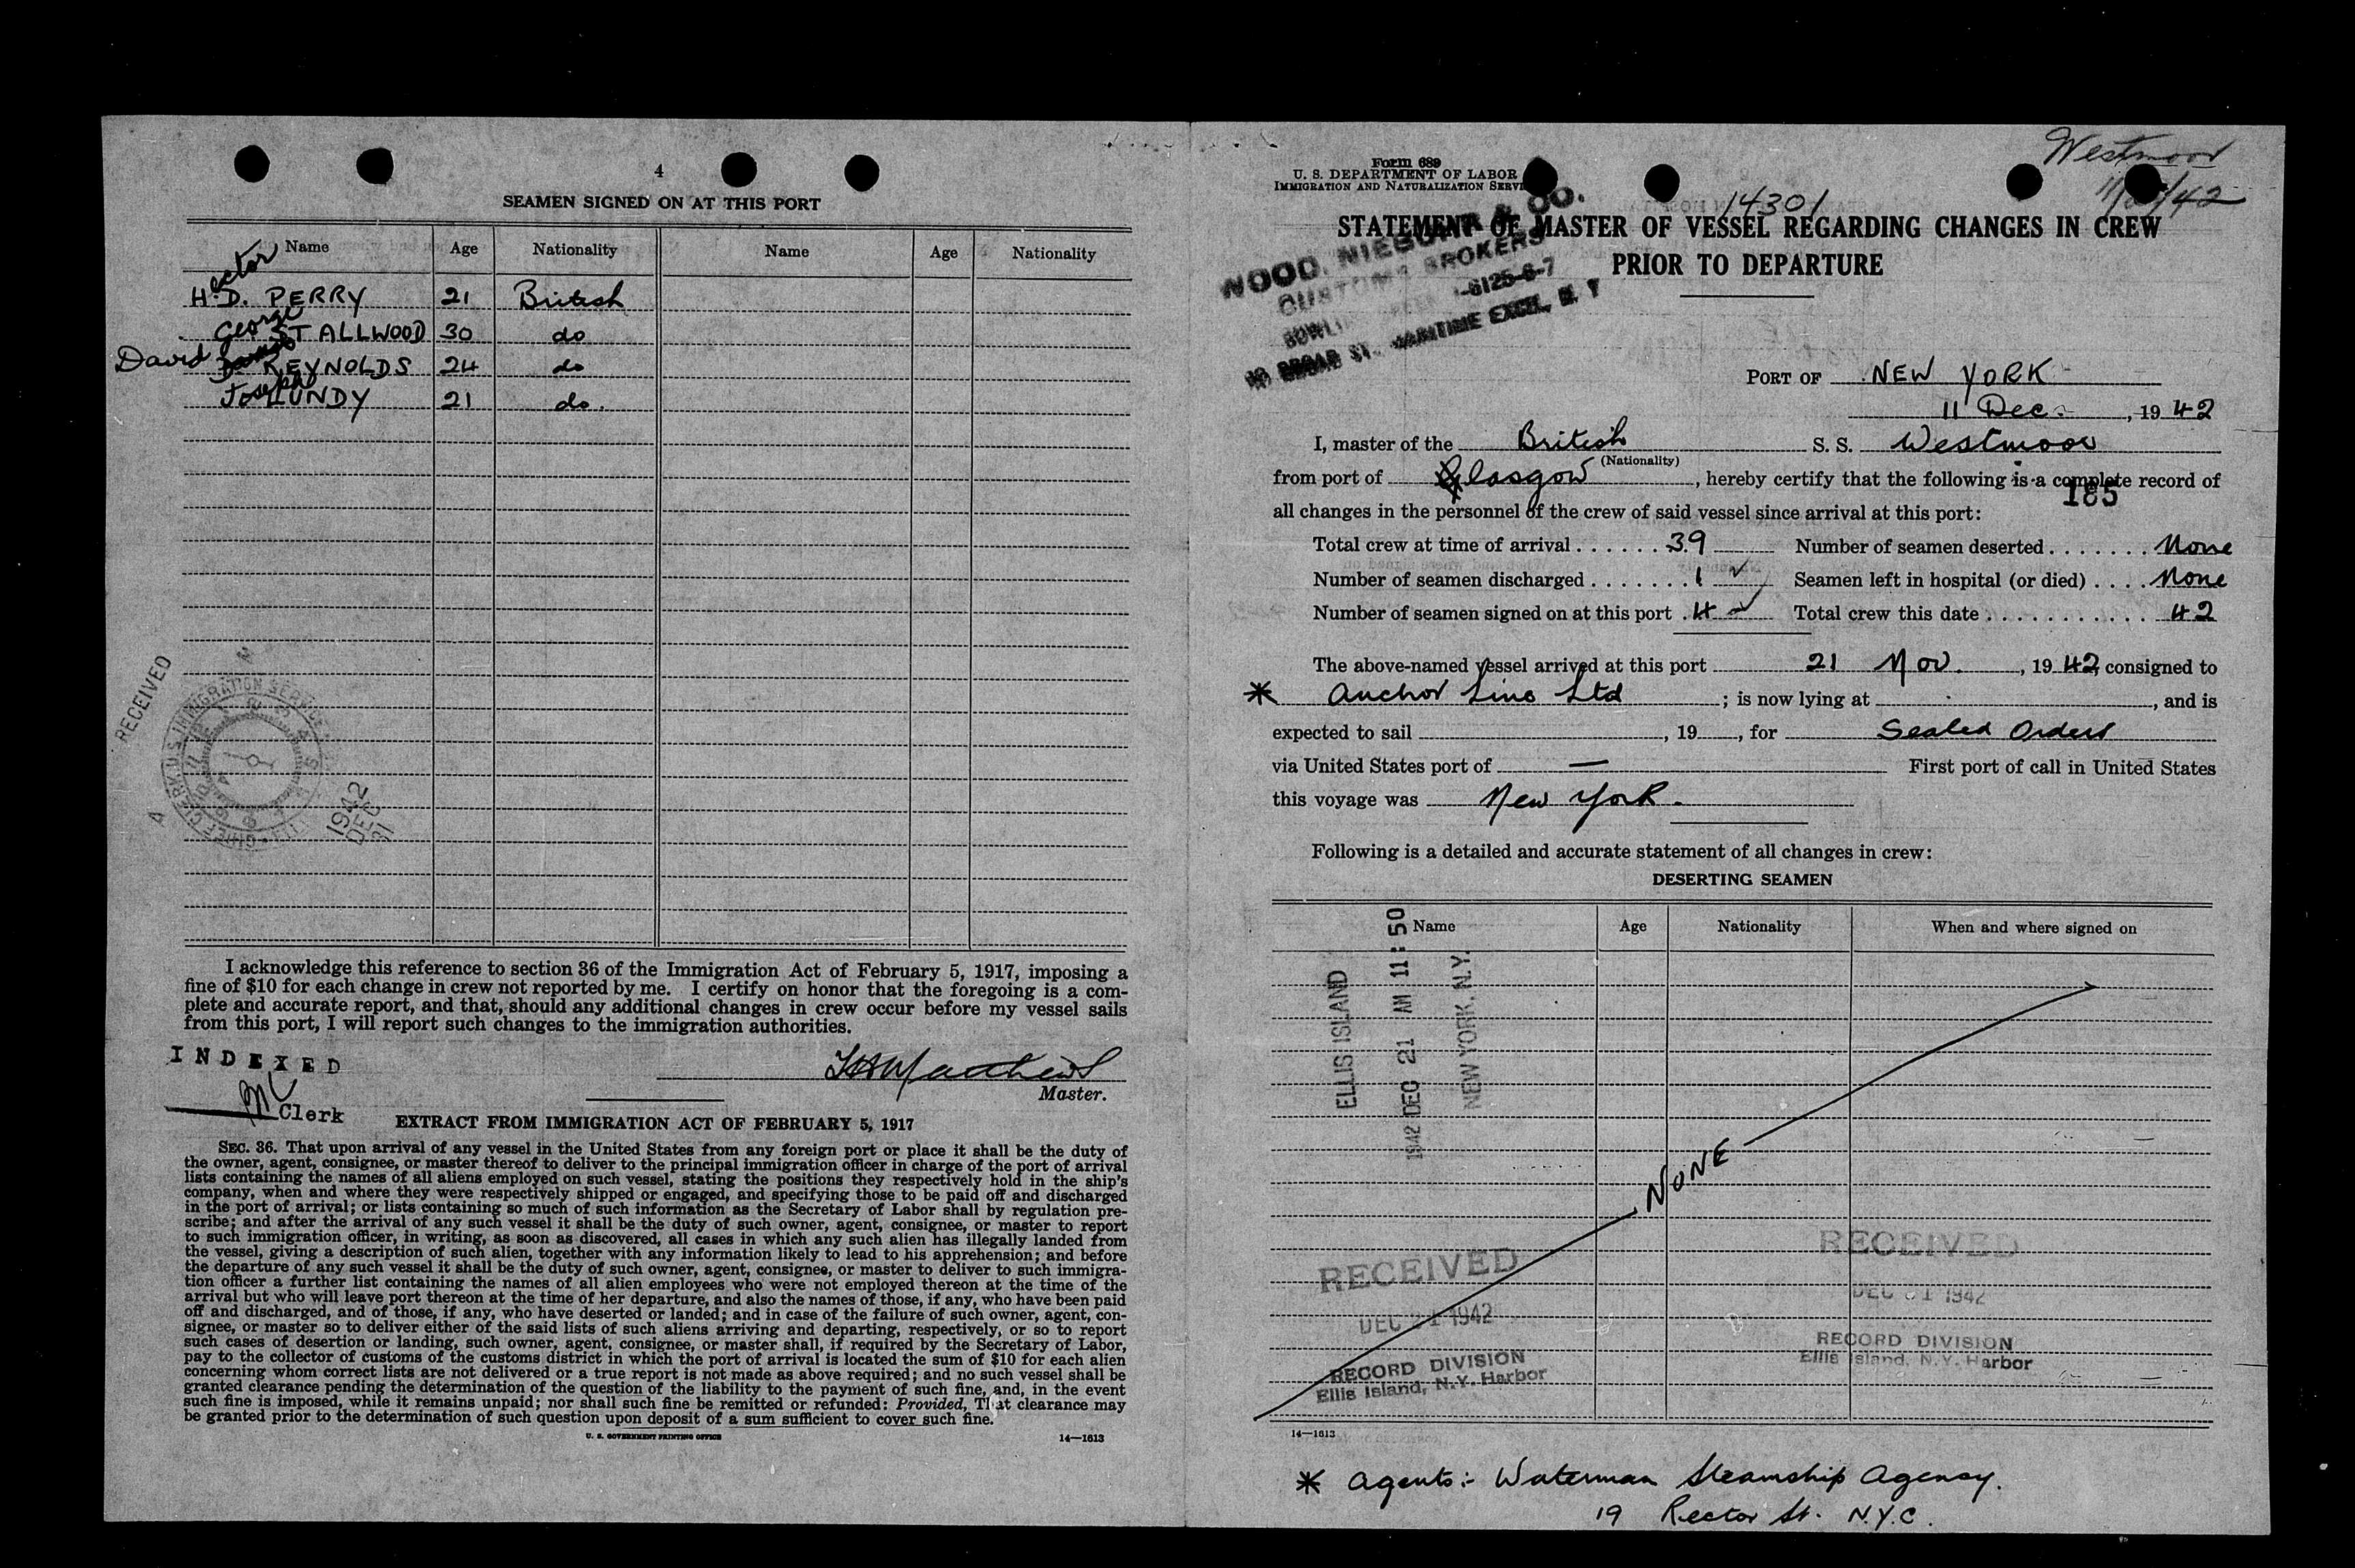 4
SEAMEN SIGNED ON AT THIS PORT
Name Age Nationality Name Age Nationality
Hector D. PERRY 21 British
George STALLWOOD 30 do
David REYNOLDS 24 do
Joseph LUNDY 21 do.
RECEIVED
U.S. IMMIGRATION SERVICE
1942
DEC
21
I acknowledge this reference to section 36 of the Immigration Act of February 5, 1917, imposing a
fine of $10 for each change in crew not reported by me. I certify on honor that the foregoing is a com-
plete and accurate report, and that, should any additional changes in crew occur before my vessel sails
from this port, I will report such changes to the immigration authorities.
INDEXED
Matthews
Master.
Clerk
EXTRACT FROM IMMIGRATION ACT OF FEBRUARY 5, 1917
SEC. 36. That upon arrival of any vessel in the United States from any foreign port or place it shall be the duty of
the owner, agent, consignee, or master thereof to deliver to the principal immigration officer in charge of the port of arrival
lists containing the names of all aliens employed on such vessel, stating the positions they respectively hold in the ship's
company, when and where they were respectively shipped or engaged, and specifying those to be paid off and discharged
in the port of arrival; or lists containing so much of such information as the Secretary of Labor shall by regulation pre-
scribe; and after the arrival of any such vessel it shall be the duty of such owner, agent, consignee, or master to report
to such immigration officer, in writing, as soon as discovered, all cases in which any such alien has illegally landed from
the vessel, giving a description of such alien, together with any information likely to lead to his apprehension; and before
the departure of any such vessel it shall be the duty of such owner, agent, consignee, or master to deliver to such immigra-
tion officer a further list containing the names of all alien employees who were not employed thereon at the time of the
arrival but who will leave port thereon at the time of her departure, and also the names of those, if any, who have been paid
off and discharged, and of those, if any, who have deserted or landed; and in case of the failure of such owner, agent, con-
signee, or master so to deliver either of the said lists of such aliens arriving and departing, respectively, or so to report
such cases of desertion or landing, such owner, agent, consignee, or master shall, if required by the Secretary of Labor,
pay to the collector of customs of the customs district in which the port of arrival is located the sum of $10 for each alien
concerning whom correct lists are not delivered or a true report is not made as above required; and no such vessel shall be
granted clearance pending the determination of the question of the liability to the payment of such fine, and, in the event
such fine is imposed, while it remains unpaid; nor shall such fine be remitted or refunded: Provided, That clearance may
be granted prior to the determination of such question upon deposit of a sum sufficient to cover such fine.
U. S. GOVERNMENT PRINTING OFFICE 14—1613
Westmoor
Form 689
U. S. DEPARTMENT OF LABOR
IMMIGRATION AND NATURALIZATION SERVICE
14301
STATEMENT OF MASTER OF VESSEL REGARDING CHANGES IN CREW
PRIOR TO DEPARTURE
WOOD, NIEBUHR & CO.
CUSTOMS BROKERS
BROAD ST. MARITIME EXCH. N. Y
PORT OF NEW YORK
11 Dec. , 19 42
I, master of the British S. S. Westmoor
(Nationality)
from port of Glasgow , hereby certify that the following is a complete record of
185
all changes in the personnel of the crew of said vessel since arrival at this port:
Total crew at time of arrival . . . . . . 39 Number of seamen deserted . . . . . . . None
Number of seamen discharged . . . . . . . 1 ✓ Seamen left in hospital (or died) . . . . None
Number of seamen signed on at this port . 4 ✓ Total crew this date . . . . . . . . . . . . 42
The above-named vessel arrived at this port 21 Nov. , 19 42, consigned to
* Anchor Line Ltd ; is now lying at , and is
expected to sail , 19 , for Sealed Orders
via United States port of — First port of call in United States
this voyage was New York.
Following is a detailed and accurate statement of all changes in crew:
DESERTING SEAMEN
Name Age Nationality When and where signed on
ELLIS ISLAND
1942 DEC 21 AM 11: 50
NEW YORK, N.Y.
NONE
RECEIVED
DEC 21 1942
RECORD DIVISION
Ellis Island, N.Y. Harbor
RECEIVED
1942
RECORD DIVISION
Ellis Island, N.Y. Harbor
14—1613
* Agents:- Waterman Steamship Agency.
19 Rector St. N.Y.C.